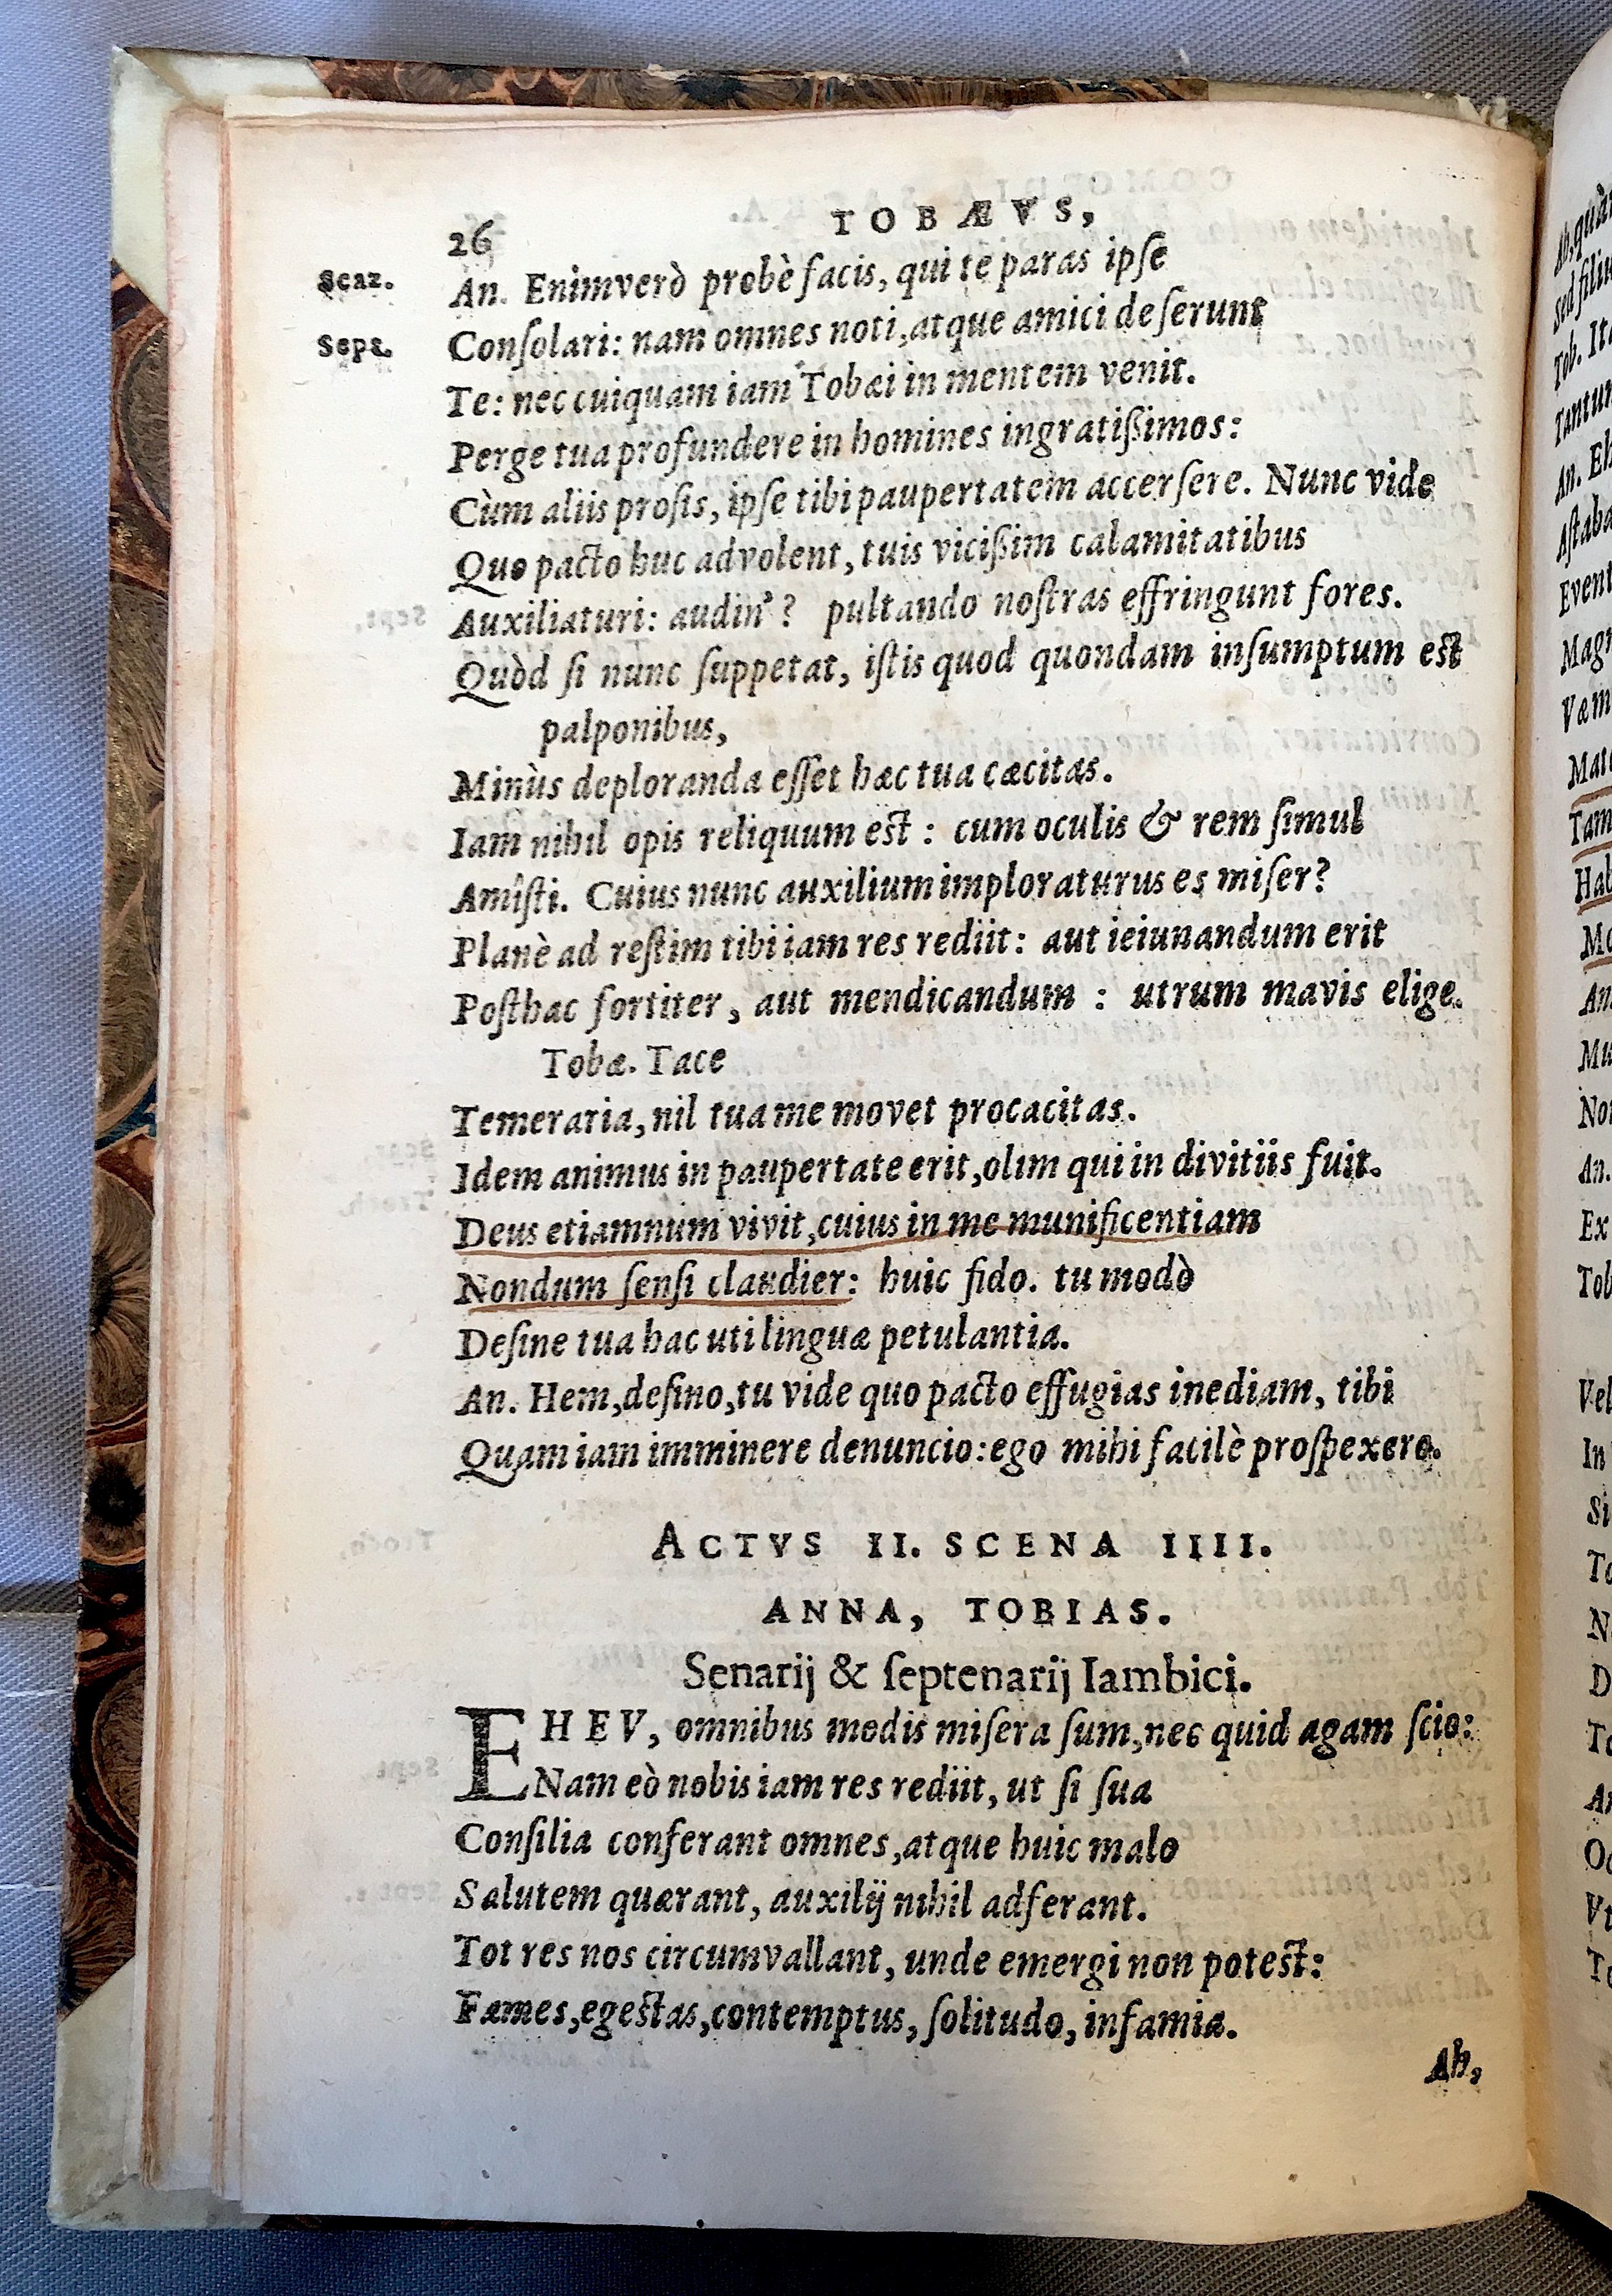 26 TOBÆVS,
Scaz. An. Enimverò probè facis, qui te paras ipſe
Sept. Conſolari: nam omnes noti, atque amici deſerunt
Te: nec cuiquam iam Tobæi in mentem venit.
Perge tua profundere in homines ingratißimos:
Cùm aliis proſis, ipſe tibi paupertatem accerſere. Nunc vide
Quo pacto huc advolent, tuis vicißim calamitatibus
Auxiliaturi: audin'? pultando noſtras effringunt fores.
Quòd ſi nunc ſuppetat, iſtis quod quondam inſumptum est
palponibus,
Minùs deploranda eſſet hæc tua cæcitas.
Iam nihil opis reliquum est: cum oculis & rem ſimul
Amîſti. Cuius nunc auxilium imploraturus es miſer?
Planè ad reſtim tibi iam res rediit: aut ieiunandum erit
Poſthac fortiter, aut mendicandum: utrum mavis elige.
Tobæ. Tace
Temeraria, nil tua me movet procacitas.
Idem animus in paupertate erit, olim qui in divitiis fuit.
Deus etiamnum vivit, cuius in me munificentiam
Nondum ſenſi claudier: huic fido. tu modò
Deſine tua hac uti linguæ petulantia.
An. Hem, deſino, tu vide quo pacto effugias inediam, tibi
Quam iam imminere denuncio: ego mihi facilè proſpexero.
ACTVS II. SCENA IIII.
ANNA, TOBIAS.
Senarij & ſeptenarij Iambici.
EHEV, omnibus modis miſera ſum, nec quid agam ſcio:
Nam eò nobis iam res rediit, ut ſi ſua
Conſilia conferant omnes, atque huic malo
Salutem quærant, auxilij nihil adferant.
Tot res nos circumvallant, unde emergi non potest:
Fames, egestas, contemptus, ſolitudo, infamia.
Ah,